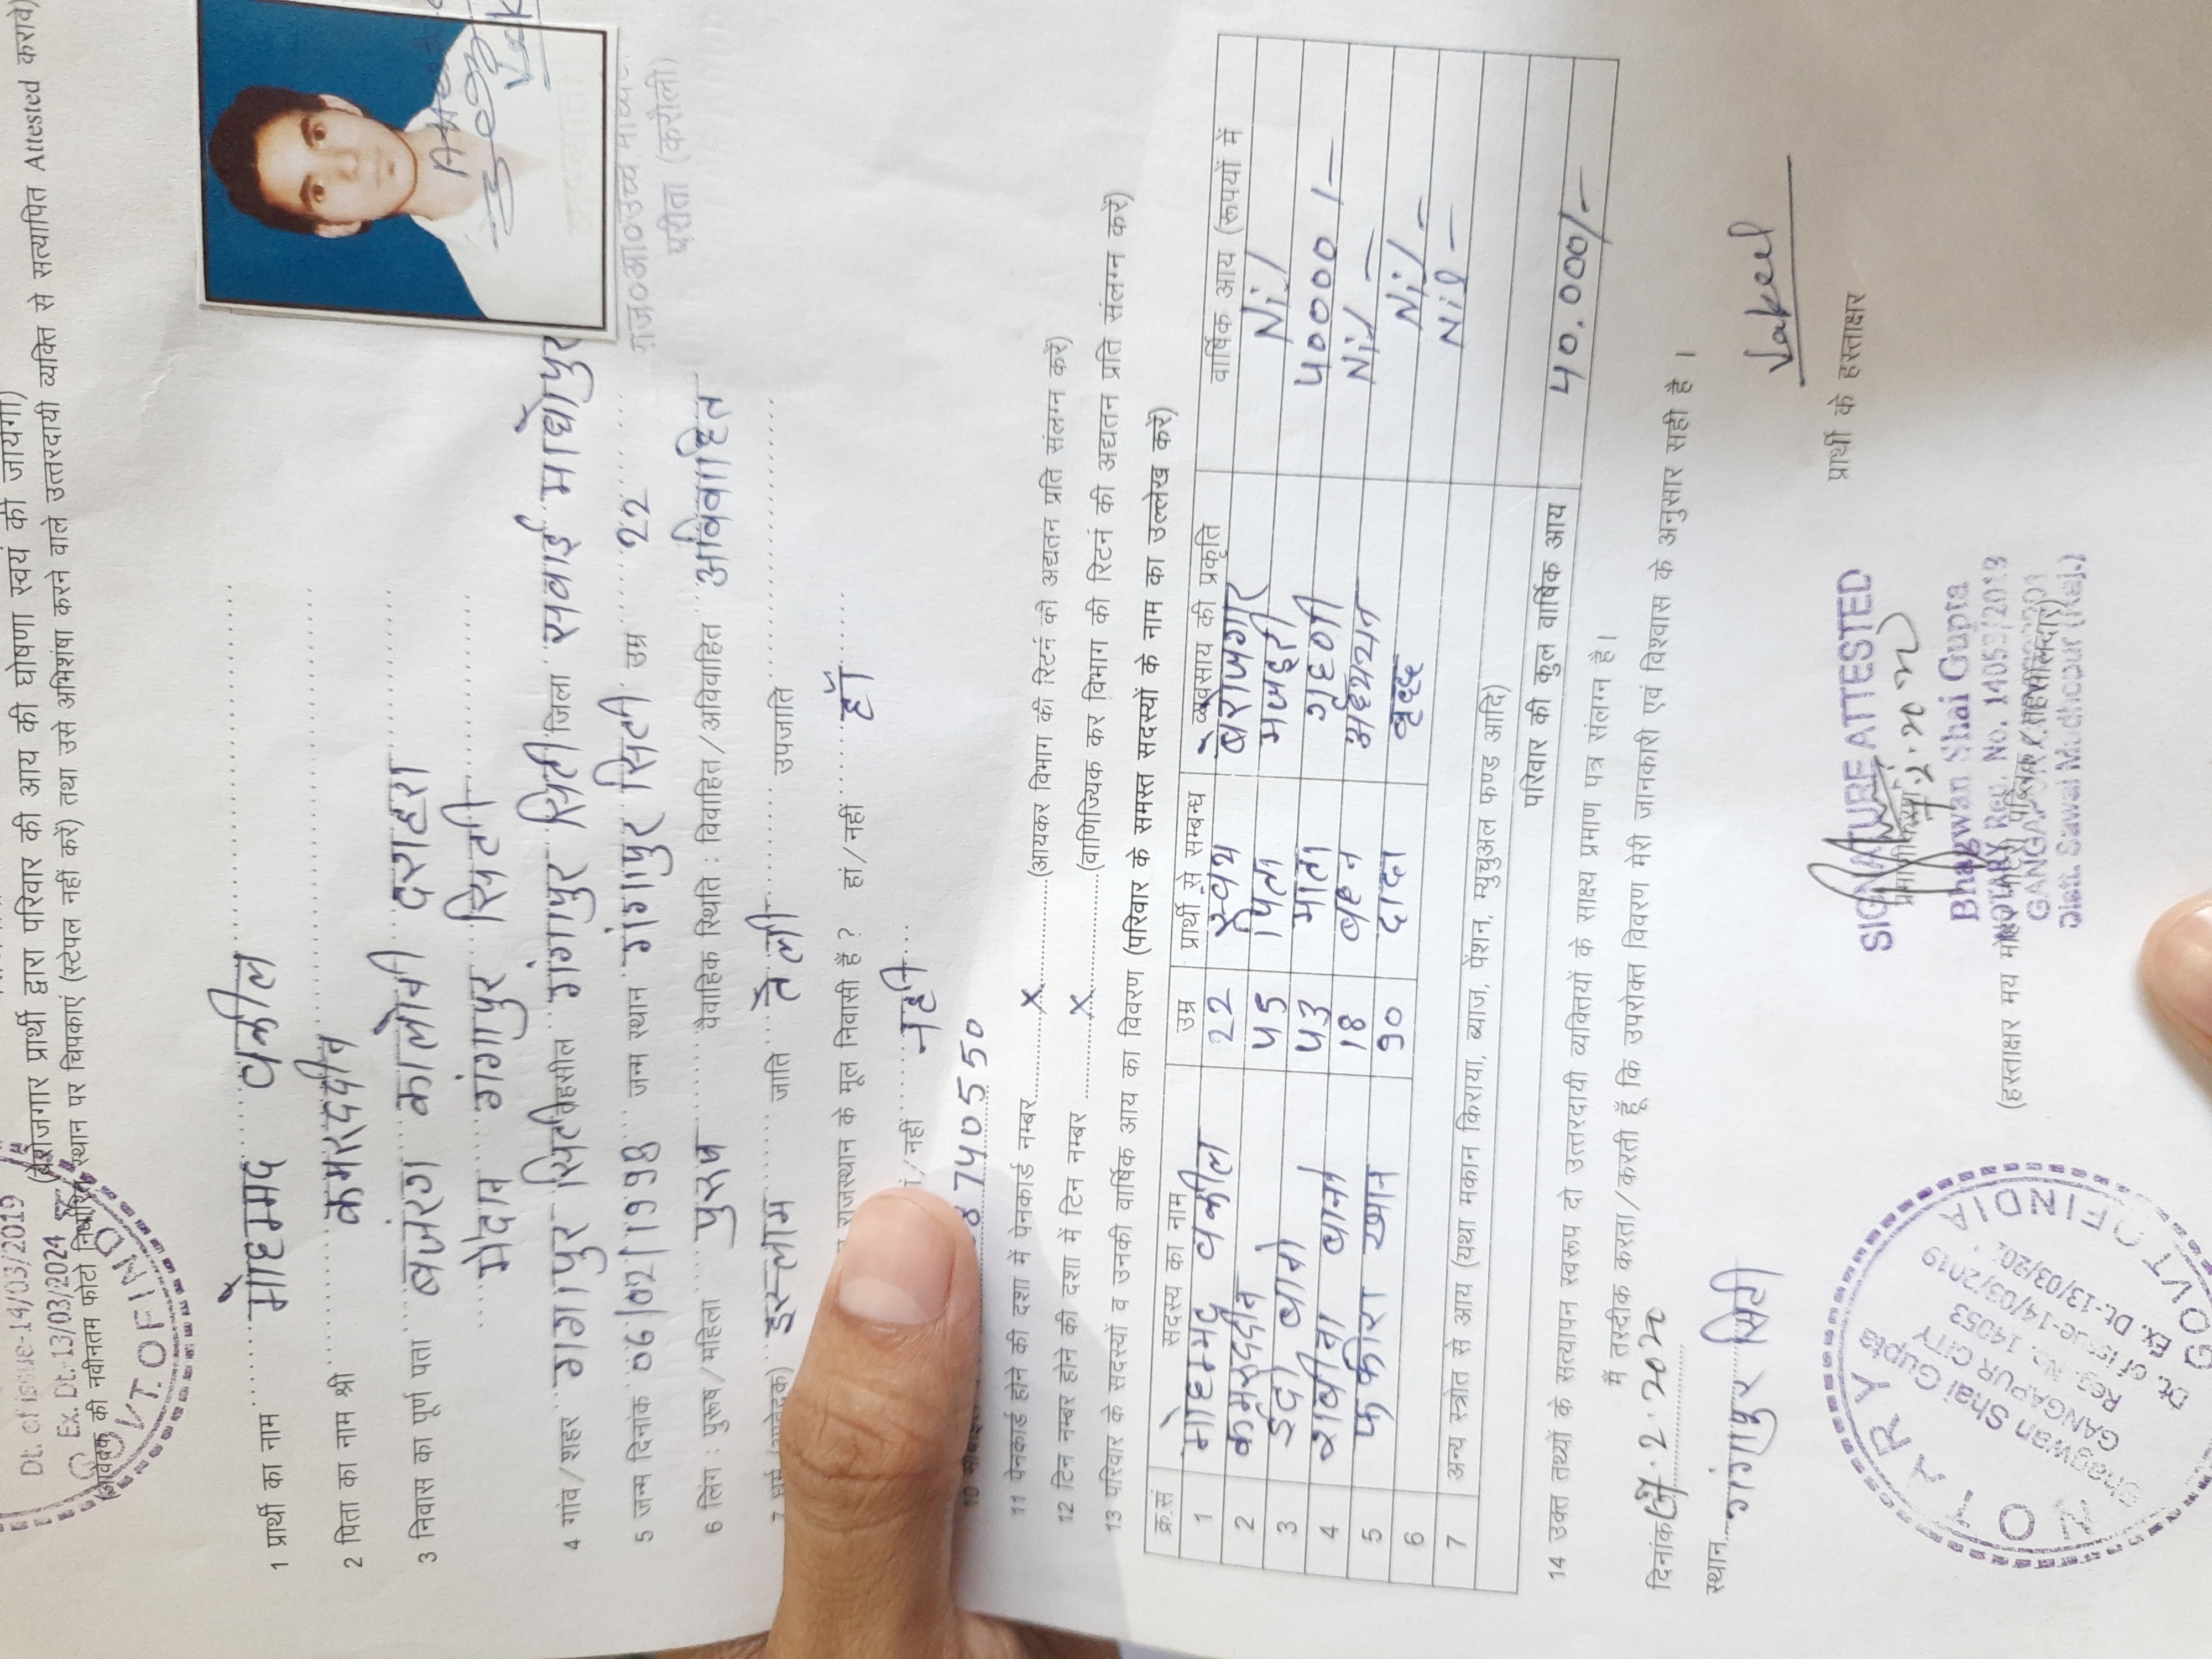 Dt. of issue-14/03/2019
Ex. Dt.-13/03/2024
GOVT. OF IND
(बेरोजगार प्रार्थी द्वारा परिवार की आय की घोषणा स्वयं की जायेगी)
(आवेदक की नवीनतम फोटो निर्धारित स्थान पर चिपकाएं (स्टेपल नहीं करें) तथा उसे अभिशंषा करने वाले उत्तरदायी व्यक्ति से सत्यापित Attested करावे)
1 प्रार्थी का नाम मोहम्मद वकील
2 पिता का नाम श्री कमरुददीन
3 निवास का पूर्ण पता बजंरग कालोनी दशहरा
मैदान गंगापुर सिटी
4 गांव/शहर गगापुर सिटी तहसील गंगापुर सिटी जिला सवाई माधोपुर
5 जन्म दिनांक 06/02/1998 जन्म स्थान गंगापुर सिटी उम्र 22
राज०आ०उच्च माध्य
परीता (करौली)
6 लिंग : पुरूष/महिला पुरुष वैवाहिक स्थिति : विवाहित/अविवाहित अविवाहित
7 धर्म (आवेदक) इस्लाम जाति तेली उपजाति
राजस्थान के मूल निवासी हैं ? हां/नहीं हाँ
/नहीं नही
10 8740550
11 पेनकार्ड होने की दशा में पेनकार्ड नम्बर x (आयकर विभाग की रिटर्न की अद्यतन प्रति संलग्न करें)
12 टिन नम्बर होने की दशा में टिन नम्बर x (वाणिज्यिक कर विभाग की रिटर्न की अद्यतन प्रति संलग्न करें)
13 परिवार के सदस्यों व उनकी वार्षिक आय का विवरण (परिवार के समस्त सदस्यों के नाम का उल्लेख करें)
क्र.सं सदस्य का नाम उम्र प्रार्थी से सम्बन्ध व्यवसाय की प्रकृति वार्षिक आय (रूपयों में
1 मोहम्मद वकील 22 स्वंय बेरोजगार Nil
2 कमरुददीन 45 पिता मजदूरी 40000/-
3 ईदो बानो 43 माता गृहणी Nil -
4 शबीना बानो 18 बहन अध्ययन Nil -
5 फकीरा खान 90 दादा वृद्ध Nil -
6
7 अन्य स्त्रोत से आय (यथा मकान किराया, ब्याज, पेंशन, म्युचुअल फण्ड आदि)
परिवार की कुल वार्षिक आय 40.000/-
14 उक्त तथ्यों के सत्यापन स्वरूप दो उत्तरदायी व्यक्तियों के साक्ष्य प्रमाण पत्र संलग्न है।
मैं तस्दीक करता/करती हूँ कि उपरोक्त विवरण मेरी जानकारी एवं विश्वास के अनुसार सही है ।
दिनांक 7.2.2020
स्थान गंगापुर सिटी
Vakeel
प्रार्थी के हस्ताक्षर
SIGNATURE ATTESTED
प्रमाणीकरण
Bhagwan Shai Gupta
NOTARY Reg. No. 14053/2019
(हस्ताक्षर मय मोहर नोटेरी पब्लिक / तहसीलदार)
Distt. Sawai Madhopur (Raj.)
NOTARY
Bhagwan Shai Gupta
GANGAPUR CITY
Reg. No. 14053
Dt. of issue-14/03/2019
Ex. Dt.-13/03/202
GOVT OF INDIA